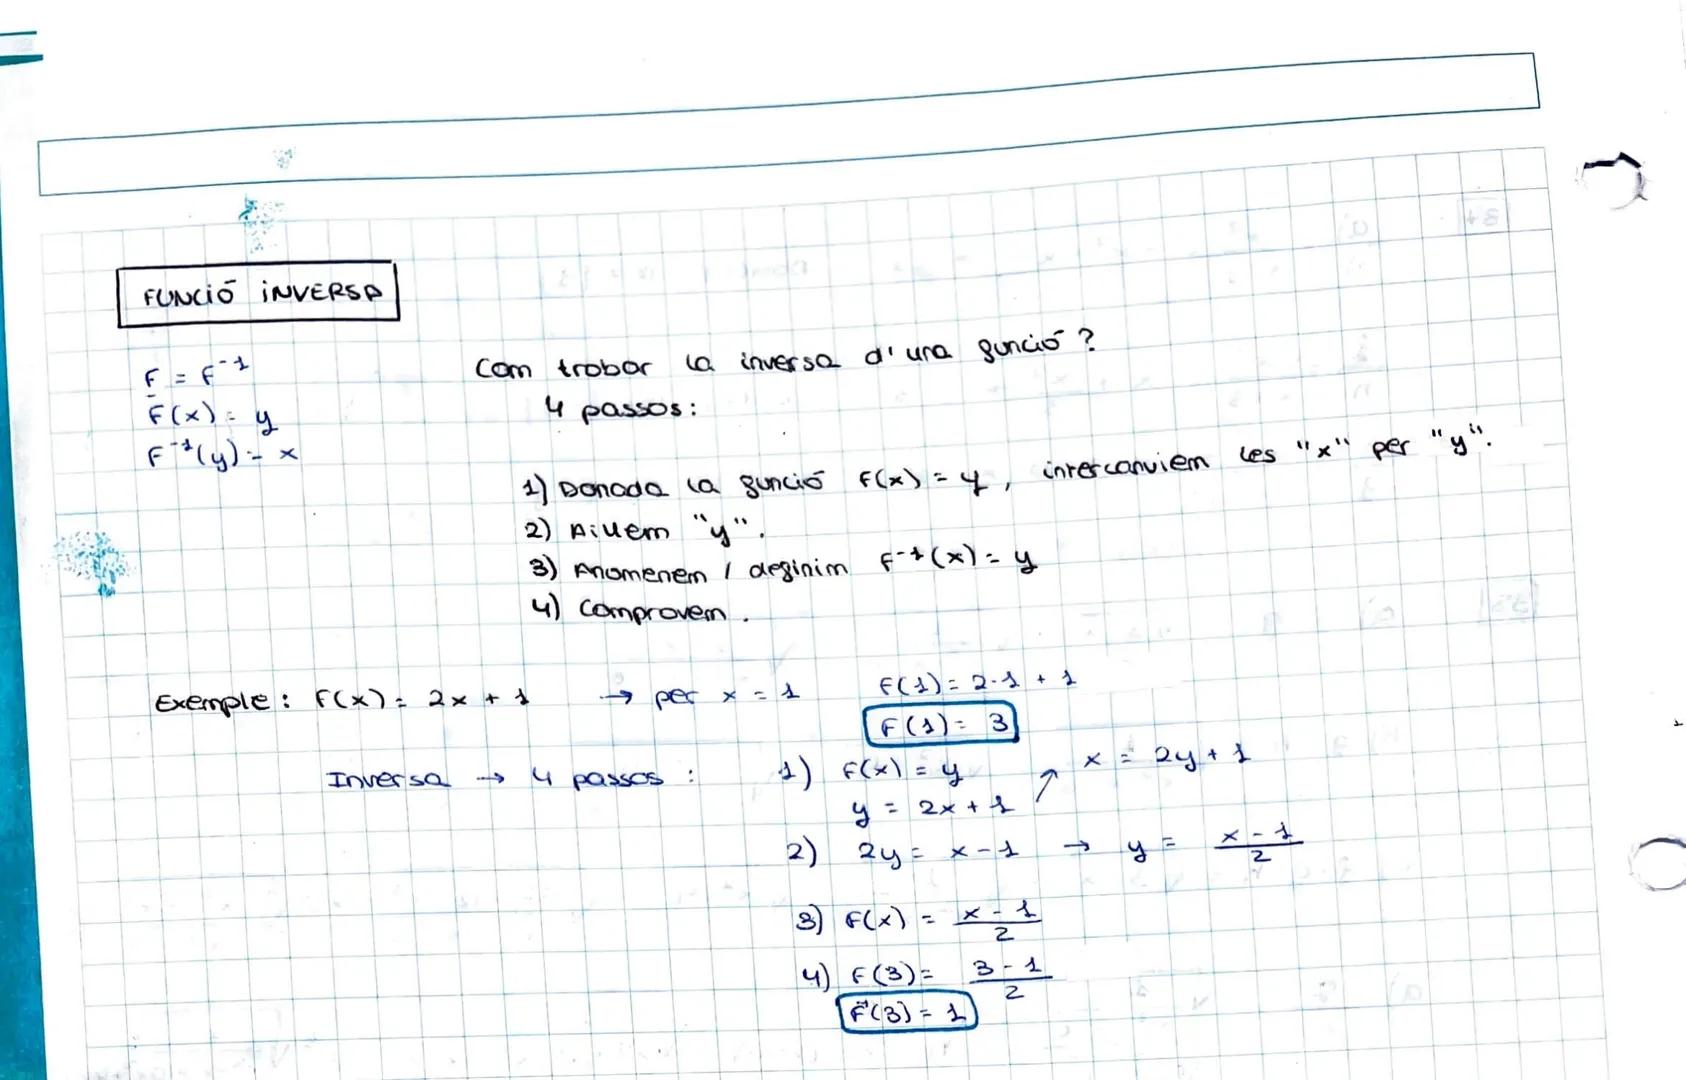 FUNCIÓ INVERSA
F = F⁻¹
F(x) = y
F⁻¹(y) = x
Com trobar la inversa d'una funció?
4 passos:
1) Donada la funció F(x) = y, intercanviem les "x" per "y".
2) Aïllem "y".
3) Anomenem / definim F⁻¹(x) = y
4) Comprovem.
Exemple: F(x) = 2x + 1 → per x = 1 F(1) = 2·1 + 1
F(1) = 3
Inversa → 4 passos: 1) F(x) = y ↗ x = 2y + 1
y = 2x + 1
2) 2y = x - 1 → y = (x - 1)/2
3) F(x) = (x - 1)/2
4) F(3) = (3 - 1)/2
F⁻¹(3) = 1